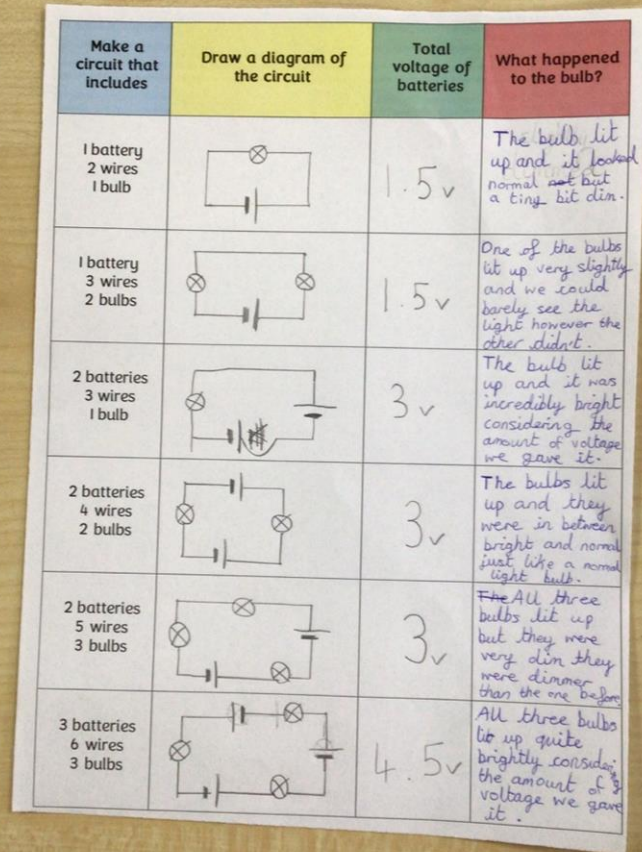 Make a
circuit that
includes
Draw a diagram of
the circuit
Total
voltage of
batteries
What happened
to the bulb?
1 battery
2 wires
1 bulb
1.5v
The bulb lit
up and it looked
normal but
a tiny bit dim.
1 battery
3 wires
2 bulbs
1.5v
One of the bulbs
lit up very slightly
and we could
barely see the
light however the
other didn't.
2 batteries
3 wires
1 bulb
3v
The bulb lit
up and it was
incredibly bright
considering the
amount of voltage
we gave it.
2 batteries
4 wires
2 bulbs
3v
The bulbs lit
up and they
were in between
bright and normal
just like a normal
light bulb.
2 batteries
5 wires
3 bulbs
3v
The All three
bulbs lit up
but they were
very dim they
were dimmer
than the one before
3 batteries
6 wires
3 bulbs
4.5v
All three bulbs
lit up quite
brightly considering
the amount of
voltage we gave
it.